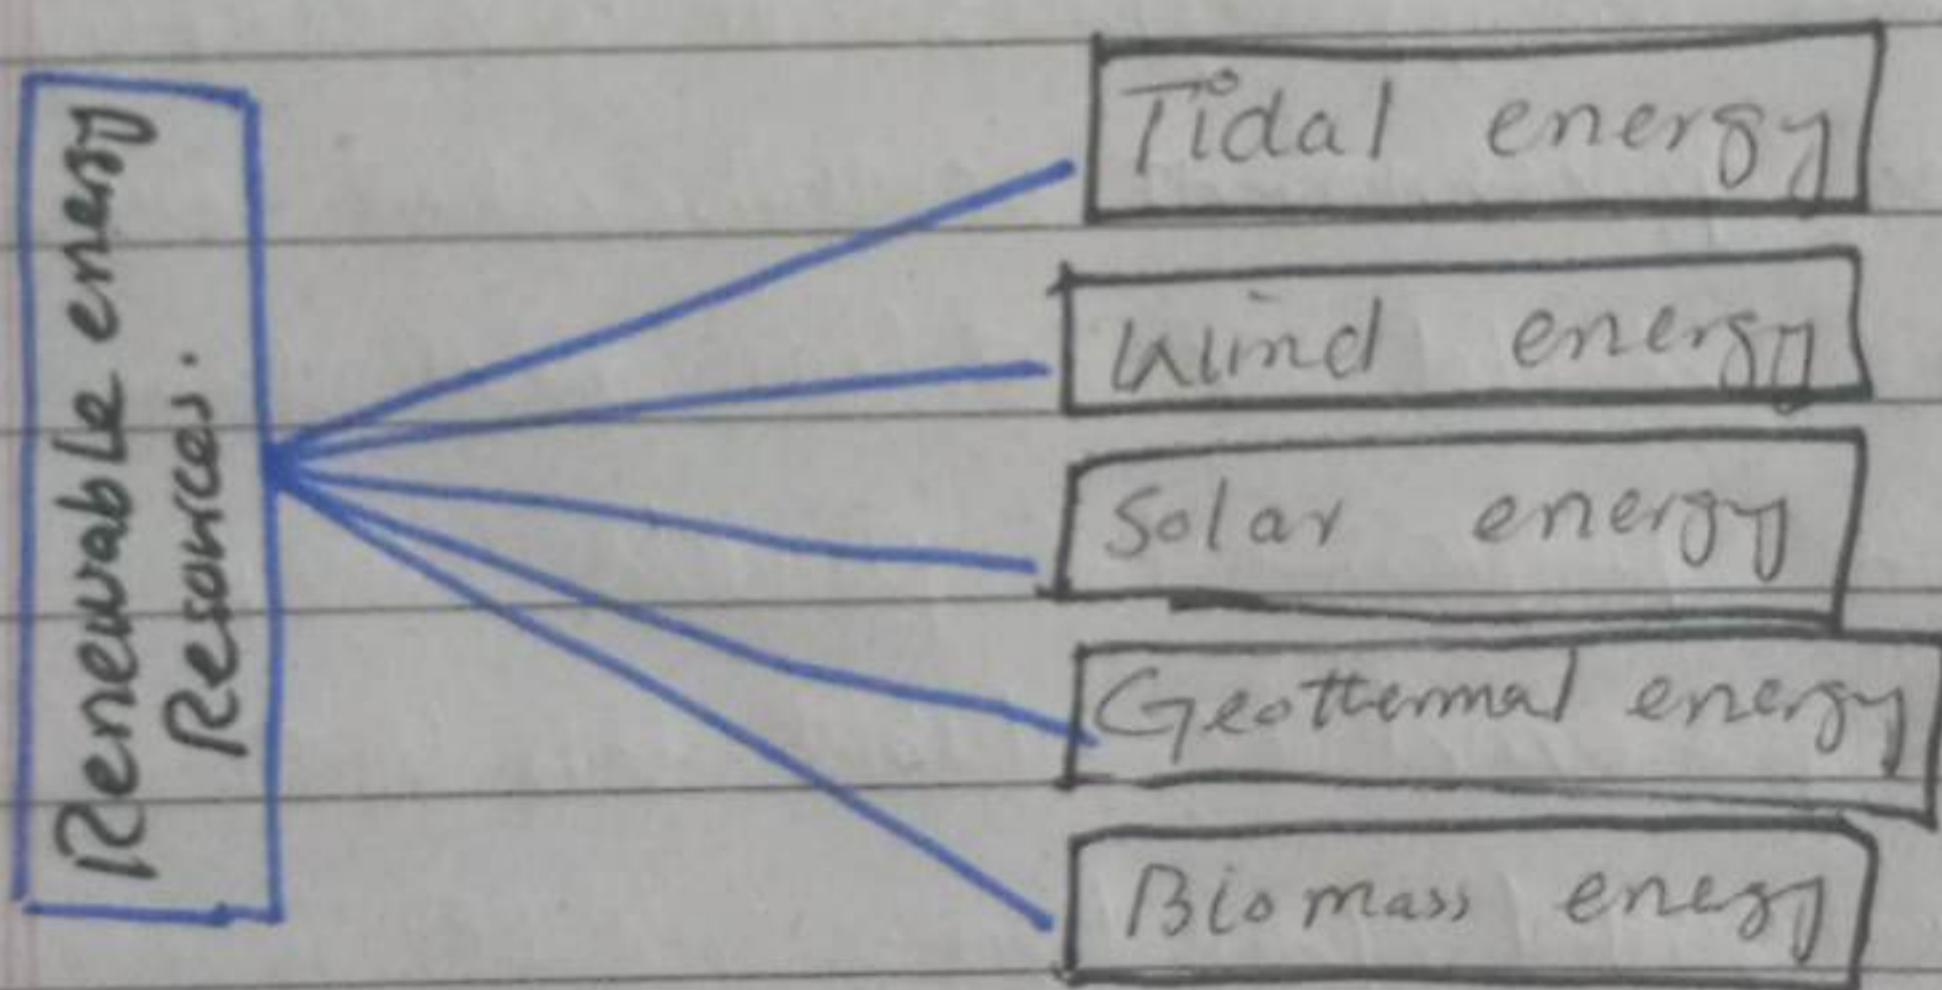 Renewable energy
Resources.
Tidal energy
Wind energy
Solar energy
Geothermal energy
Biomass enegy